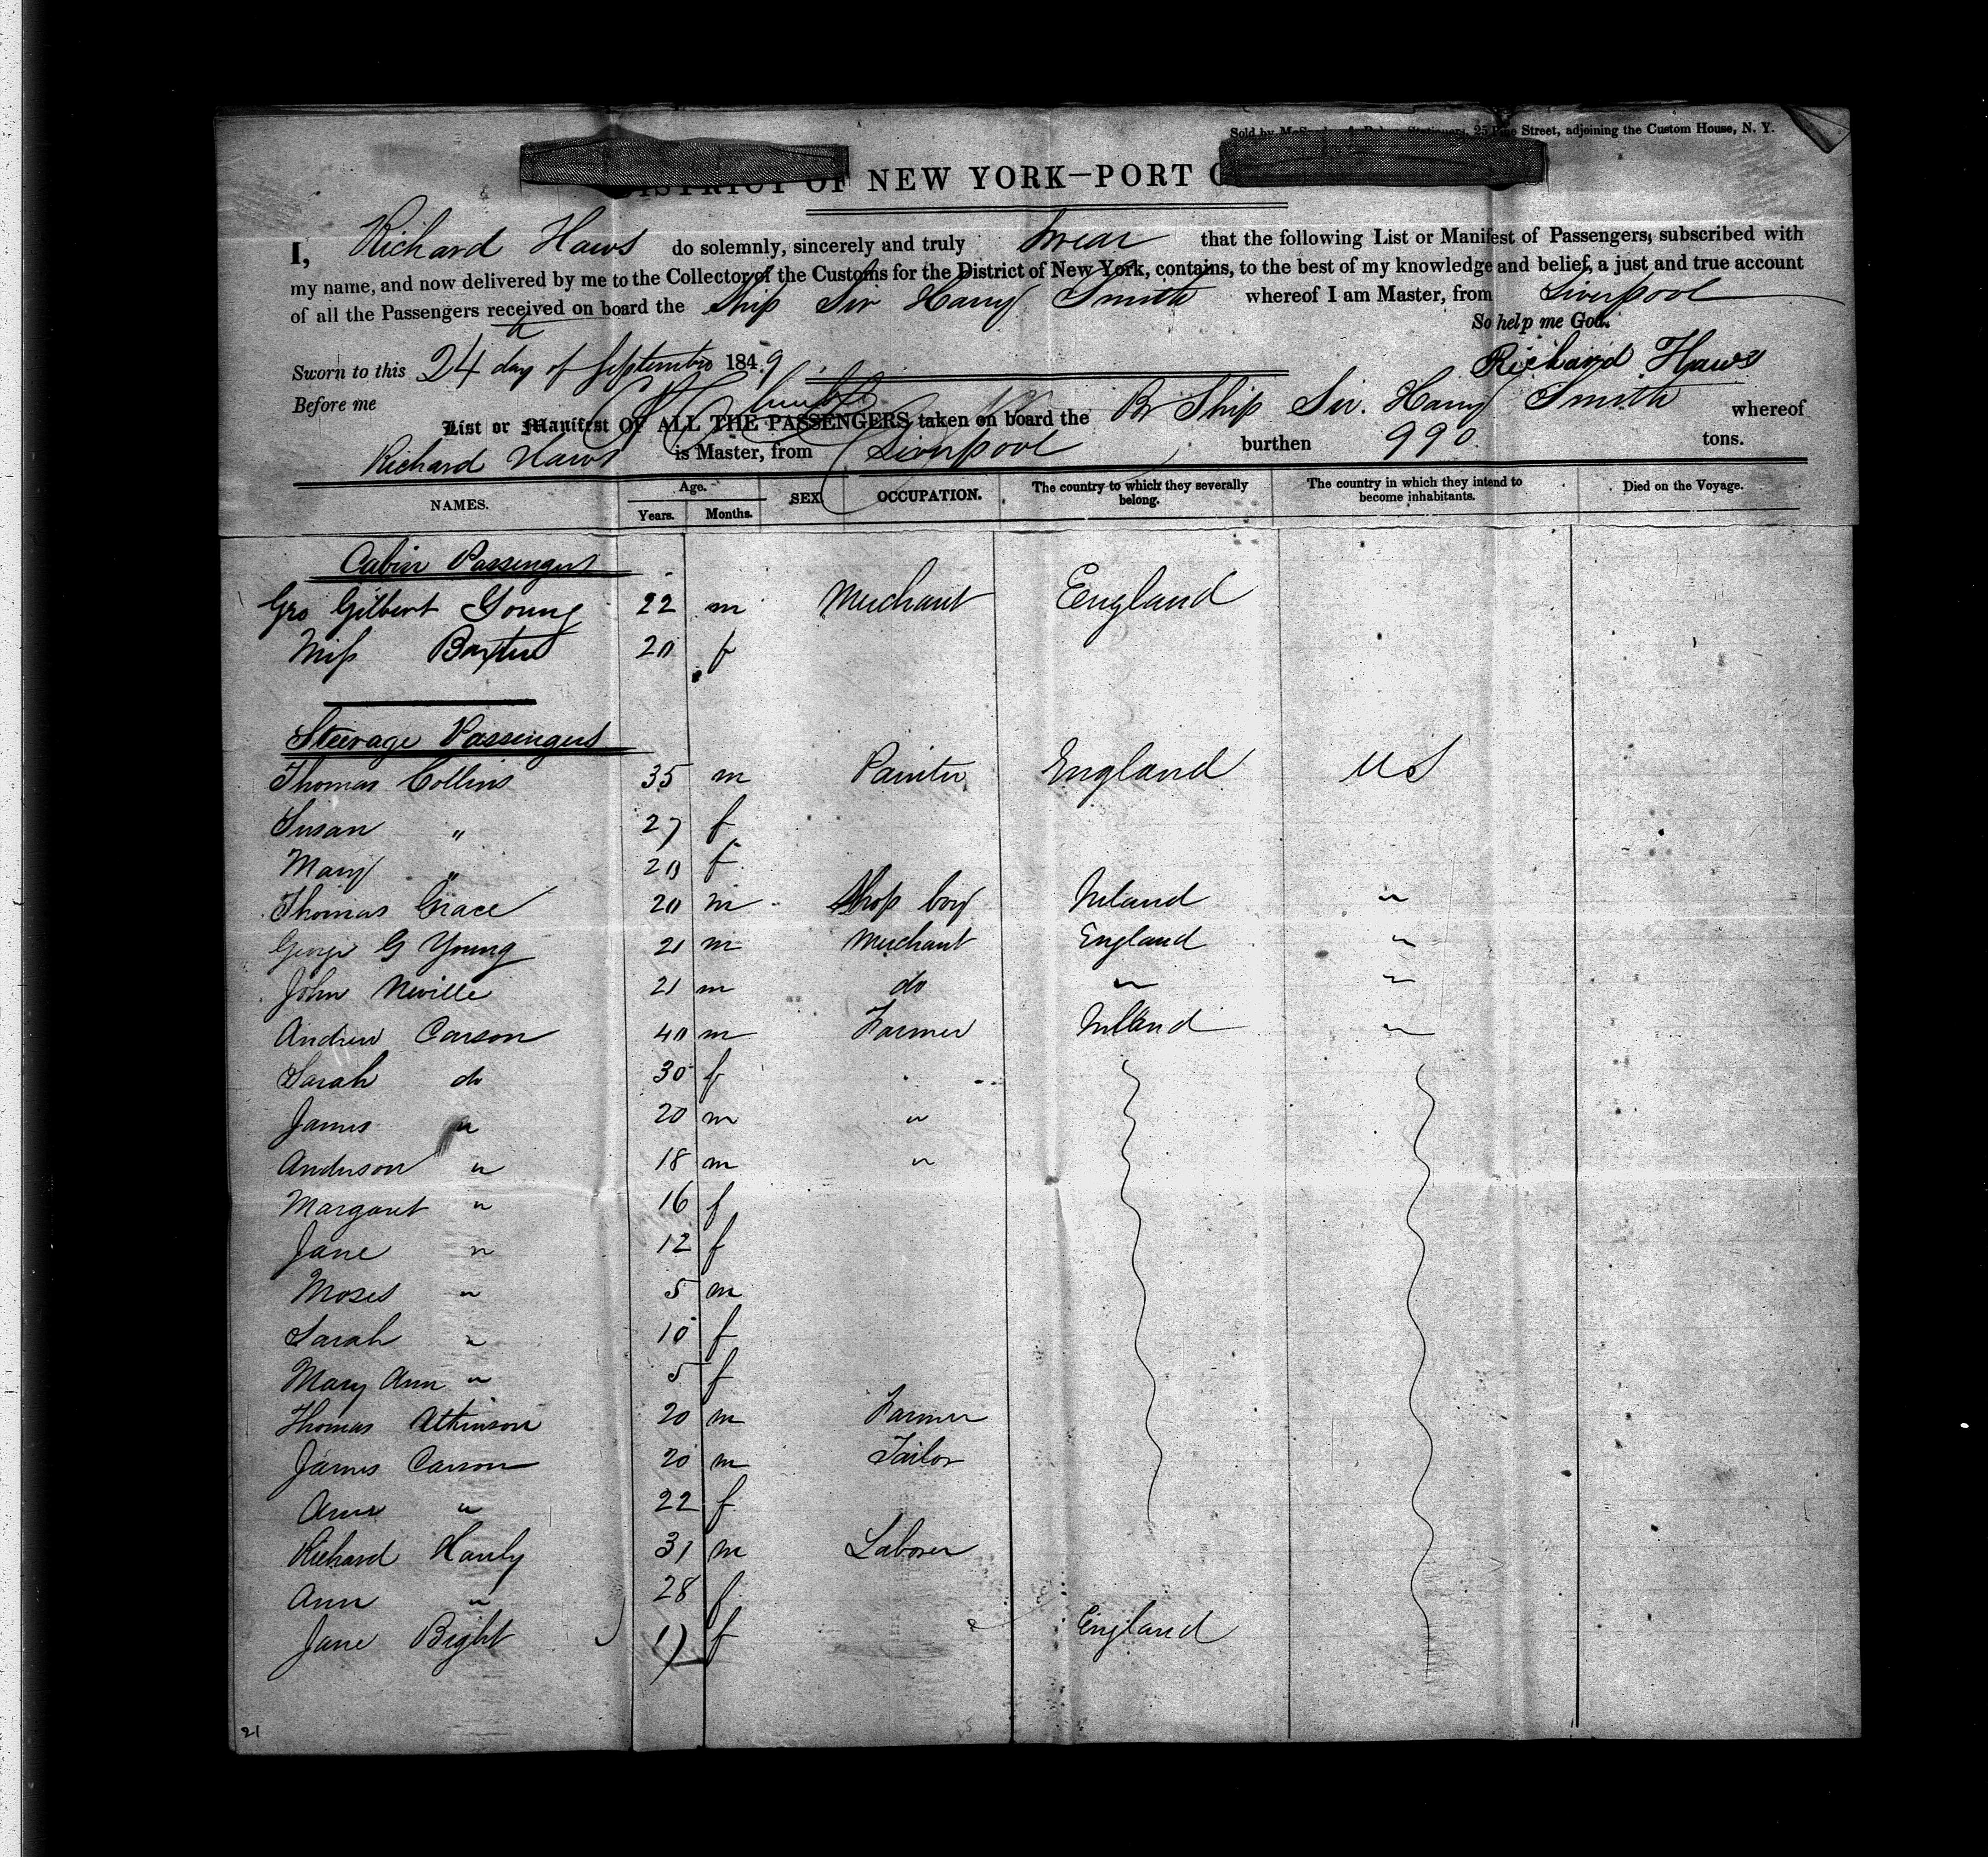 Sold by Stationers, 25 Pine Street, adjoining the Custom House, N. Y.
DISTRICT OF NEW YORK—PORT O
I, Richard Haws do solemnly, sincerely and truly swear that the following List or Manifest of Passengers, subscribed with
my name, and now delivered by me to the Collector of the Customs for the District of New York, contains, to the best of my knowledge and belief, a just and true account
of all the Passengers received on board the Ship Sir Harry Smith whereof I am Master, from Liverpool
So help me God.
Sworn to this 24th day of September 1849 Richard Haws
Before me
List or Manifest OF ALL THE PASSENGERS taken on board the Br Ship Sir. Harry Smith whereof
Richard Haws is Master, from Liverpool burthen 990 tons.
NAMES. Age. Years. Months. SEX OCCUPATION. The country to which they severally belong. The country in which they intend to become inhabitants. Died on the Voyage.
Cabin Passengers
Geo Gilbert Young 22 m Merchant England
Miss Baxter 20 f
Steerage Passengers
Thomas Collins 35 m Painter England US
Susan " 27 f
Mary " 20 f
Thomas Grace 20 m Shop boy Ireland "
George G Young 21 m Merchant England "
John Neville 21 m do " "
Andrew Carson 40 m Farmer Ireland "
Sarah do 30 f
James " 20 m "
Anderson " 18 m "
Margaret " 16 f
Jane " 12 f
Moses " 5 m
Sarah " 10 f
Mary Ann " 5 f
Thomas Atkinson 20 m Farmer
James Carson 20 m Tailor
Ann " 22 f
Richard Hanly 31 m Laborer
Ann " 28 f
Jane Bight 17 f England
21